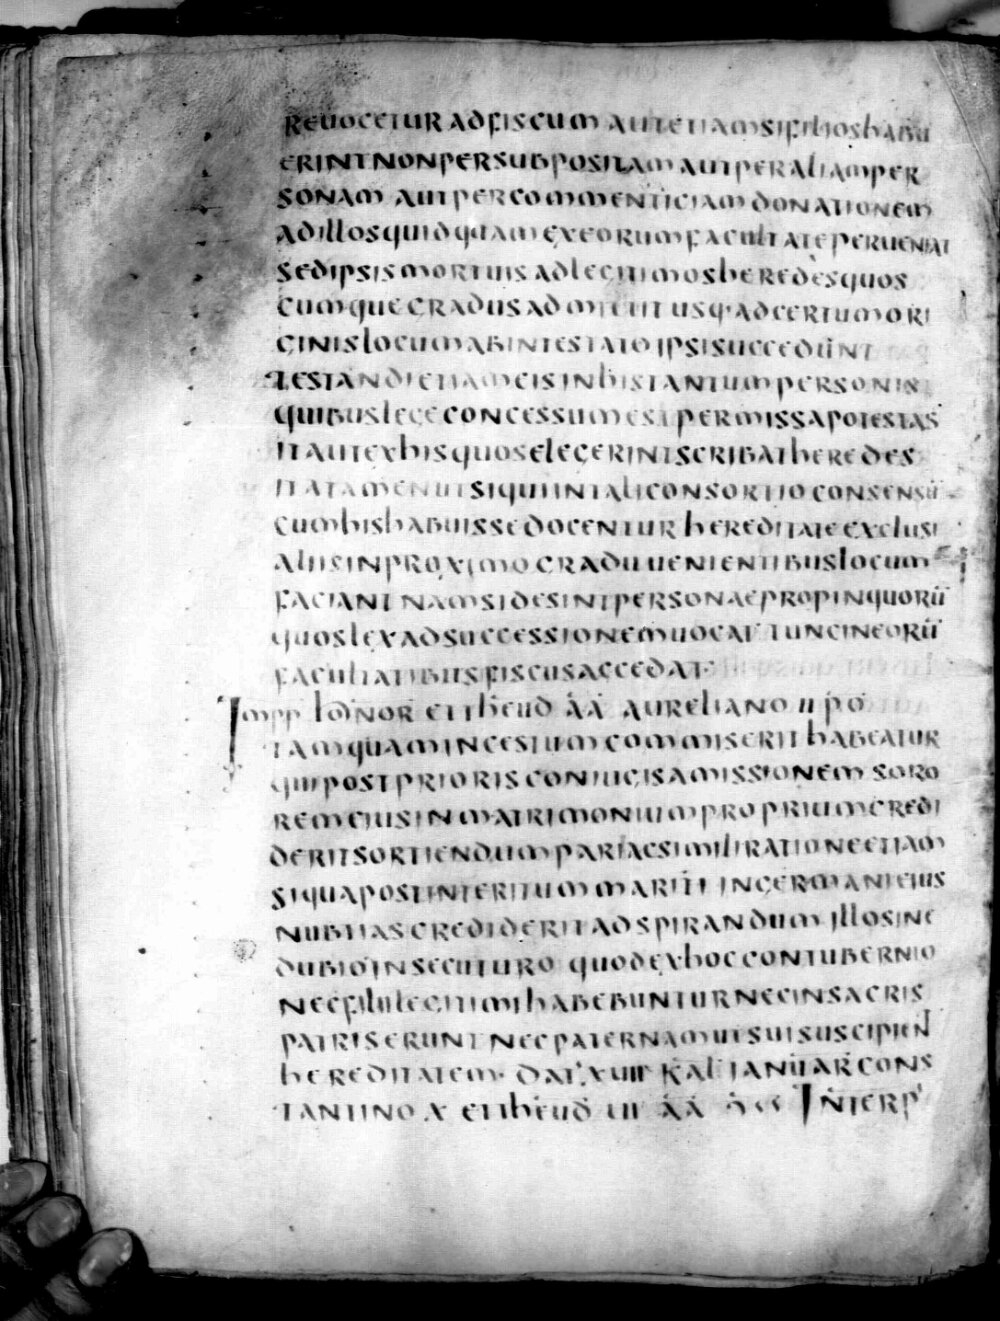 REUOCETUR AD FISCUM AUT ETIAM SI FILIOS HABU
ERINT NON PER SUBPOSITAM AUT PER ALIAM PER
SONAM AUT PER COMMENTICIAM DONATIONEM
AD ILLOS QUIDQUAM EX EORUM FACULTATE PERUENIAT
SED IPSIS MORTUIS AD LEGITIMOS HEREDES QUOS
CUMQUE GRADUS ADMITTIT USQ· AD CERTUM ORI
GINIS LOCUM AB INTESTATO IPSI SUCCEDUNT
TESTANDI ETIAM EIS IN HIS TANTUM PERSONIS
QUIBUS LEGE CONCESSUM EST PERMISSA POTESTAS
ITA UT EX HIS QUOS ELEGERINT SCRIBAT HEREDES
ITA TAMEN UT SI QUI IN TALI CONSORTIO CONSENSŪ
CUM HIS HABUISSE DOCENTUR HEREDITATE EXCLUSI
ALIIS IN PROXIMO GRADU UENIENTIBUS LOCUM
FACIANT NAM SI DESINT PERSONAE PROPINQUORŪ
QUOS LEX AD SUCCESSIONEM UOCAT TUNC IN EORŪ
FACULTATIBUS FISCUS ACCEDAT·
Impp HONOR ET THEUD ĀĀ AURELIANO II PO
TAMQUAM INCESTUM COMMISERIT HABEATUR
QUI POST PRIORIS CONIUGIS AMISSIONEM SORO
REM EIUS IN MATRIMONIUM PROPRIUM CREDI
DERIT SORTIENDUM PARI AC SIMILI RATIONE ETIAM
SI QUA POST INTERITUM MARITI IN GERMANI EIUS
NUBTIAS CREDIDERIT ADSPIRANDUM ILLO SINE
DUBIO INSECUTURO QUOD EX HOC CONTUBERNIO
NEC FILII LEGITIMI HABEBUNTUR NEC IN SACRIS
PATRIS ERUNT NEC PATERNAM UT SUI SUSCIPIEN̄
HEREDITATEM· DAT· XUII KAL IANUAR CONS
TANTINO X ET THEUD III ĀĀ INTERP